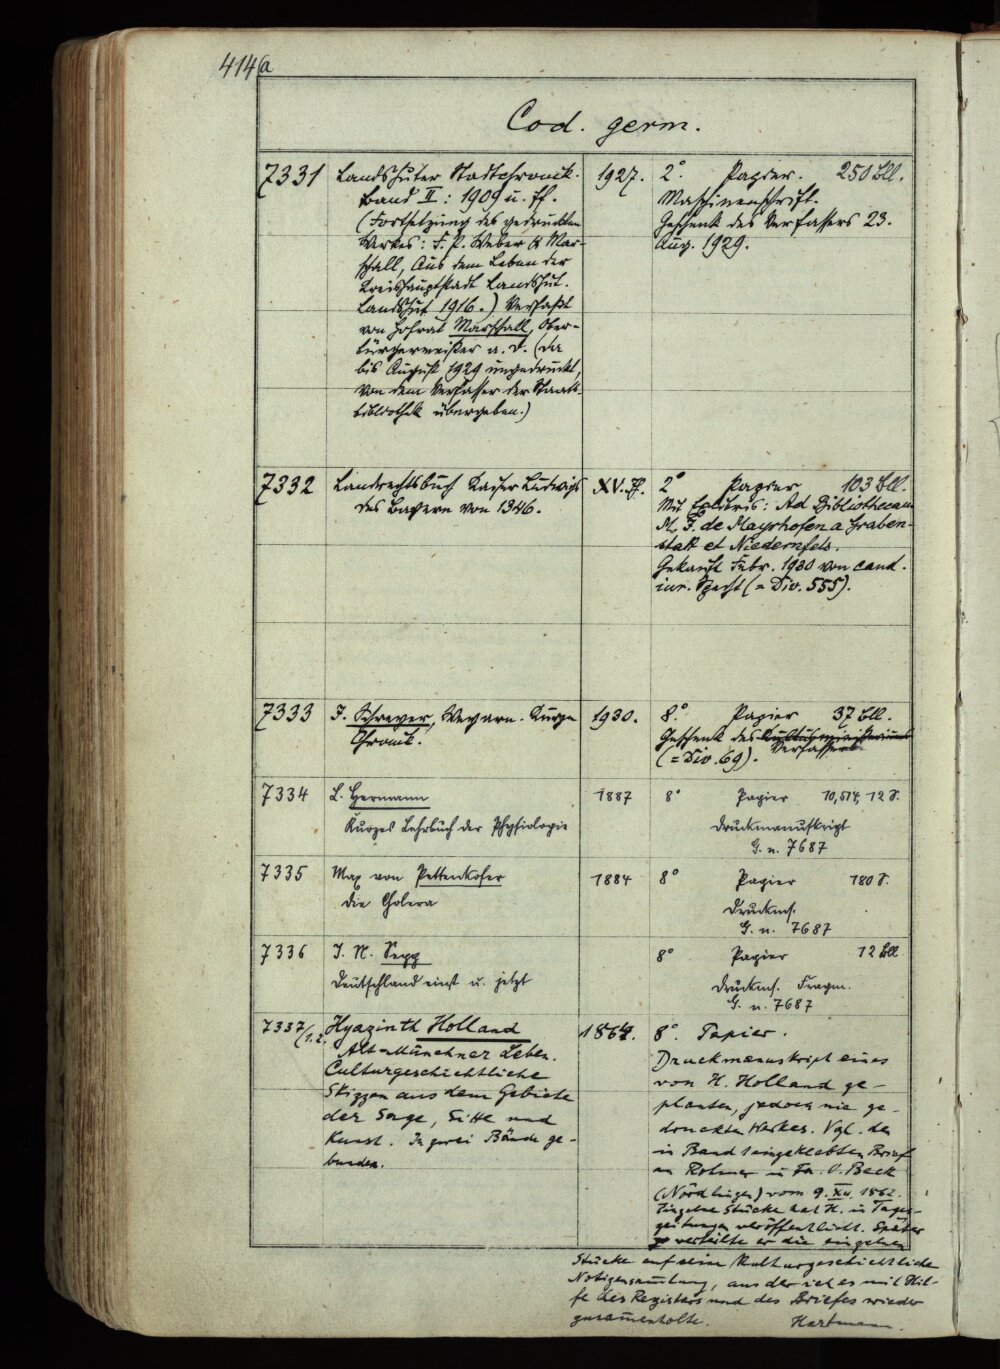 414a
Cod. germ.
7331 Landshuter Stadtchronik. 1927. 2° Papier. 250 Bll.
Band II: 1909 u. ff. Maschinenschrift.
(Fortsetzung des gedruckten Geschenk des Verfassers 23.
Werkes: F. P. Weber & Mar- Aug. 1929.
schall, Aus dem Leben der
Kreishauptstadt Landshut.
Landshut 1916.) Verfaßt
von Hofrat Marschall, Ober-
bürgermeister a. D. (Da
bis August 1929 ungedruckt,
von dem Verfasser der Staats-
bibliothek übergeben.)
7332 Landrechtsbuch Kaiser Ludwigs XV. Jh. 2° Papier 103 Bll.
des Bayern von 1346. Mit Exlibris: Ad Bibliothecam
M. F. de Mayrhofen a Graben-
statt et Niedernfels.
Gekauft Febr. 1930 von cand.
iur. Specht (= Div. 555).
7333 J. Schreyer, Weyarn. Kurze 1930. 8° Papier 37 Bll.
Chronik. Geschenk des Kultusministeriums
Verfassers
(= Div. 69).
7334 L. Hermann 1887 8° Papier 10, 514, 12 S.
Kurzes Lehrbuch der Physiologie Druckmanuskript
G. n. 7687
7335 Max von Pettenkofer 1884 8° Papier 180 S.
Die Cholera Druckms.
G. n. 7687
7336 J. N. Sepp 8° Papier 12 Bll
Deutschland einst u. jetzt Druckms. Fragm.
G. n. 7687
7337/1.2. Hyazinth Holland 1864. 8° Papier.
Alt-Münchner Leben. Druckmanuskript eines
Culturgeschichtliche von H. Holland ge-
Skizzen aus dem Gebiete planten, jedoch nie ge-
der Sage, Sitte und druckten Werkes. Vgl. den
Kunst. In zwei Bände ge- in Band 1 eingeklebten Brief
bunden. an Rohmer in Fa. C. Beck
(Nördlingen) vom 9. XII. 1862.
Einzelne Stücke hat H. in Tages-
zeitungen veröffentlicht. Später
verteilte er die einzelnen
Stücke auf seine kulturgeschichtliche
Notizensammlung, aus der ich es mit Hil-
fe des Registers und des Briefes wieder
zusammenholte. Hartmann.